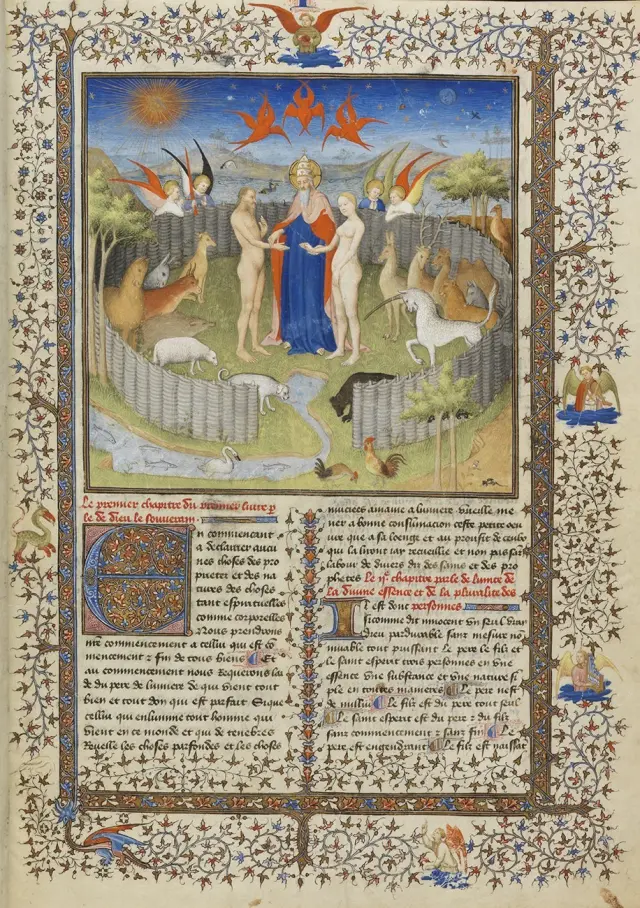 Le premier chapitre du premier livre p
le de dieu le souverain.
En commencant
a declairer aucu
nes choses des pro
prietez et des na
tures des choses
tant espirituelles
comme corporelles
Nous prendrons
nre commencement a cellui qui est co
mencement z fin de tous biens Et
au commencement nous requerons lai
de du pere de lumiere de qui vient tout
bien et tout don qui est parfait Si que
cellui qui enlumine tout homme qui
vient en ce monde et qui de tenebres
revelle les choses parfondes et les choses
muciees amaine a lumiere vueille me
ner a bonne consumacion ceste petite oeu
vre que a sa loenge et au prouffit de ceulx
qui la liront iay recueillie et non pas sans
labour de divers diz des sains et des pro
phetes Le ije chapitre parle de lunite de
la divine essence et de la pluralite des
Il est donc personnes
si comme dit innocent un seul vray
dieu pardurable sans mesure no
muable tout puissant le pere le filz et
le saint esperit trois personnes en une
essence une substance et une nature si
ple en toutes manieres Le pere nest
de nullui Le filz est du pere tout seul
Le saint esperit est du pere z du filz
sans commencement z sans fin Le
pere est engendrant Le filz est naissat